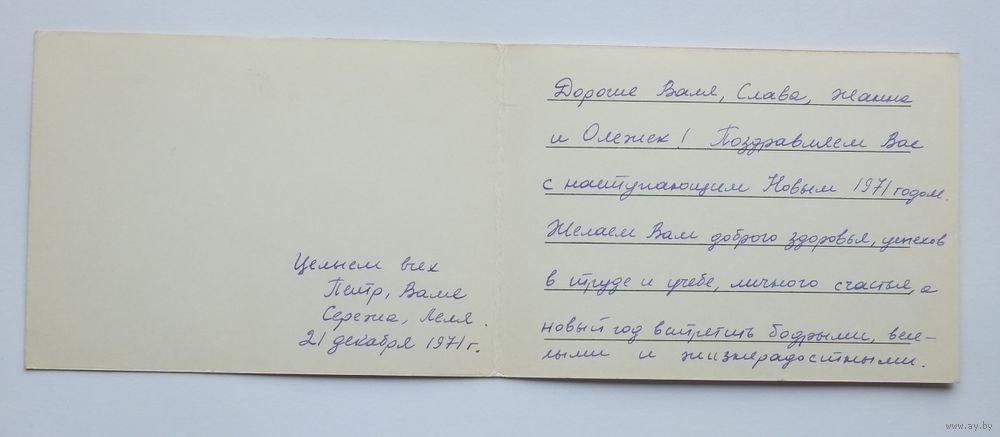 Целуем всех
Петр, Валя
Сережа, Леля.
21 декабря 1971 г.
Дорогие Валя, Слава, Жанна
и Олежек! Поздравляем Вас
с наступающим Новым 1971 годом.
Желаем Вам доброго здоровья, успехов
в труде и учебе, личного счастья, а
новый год встретить бодрыми, весе-
лыми и жизнерадостными.
www.ay.by